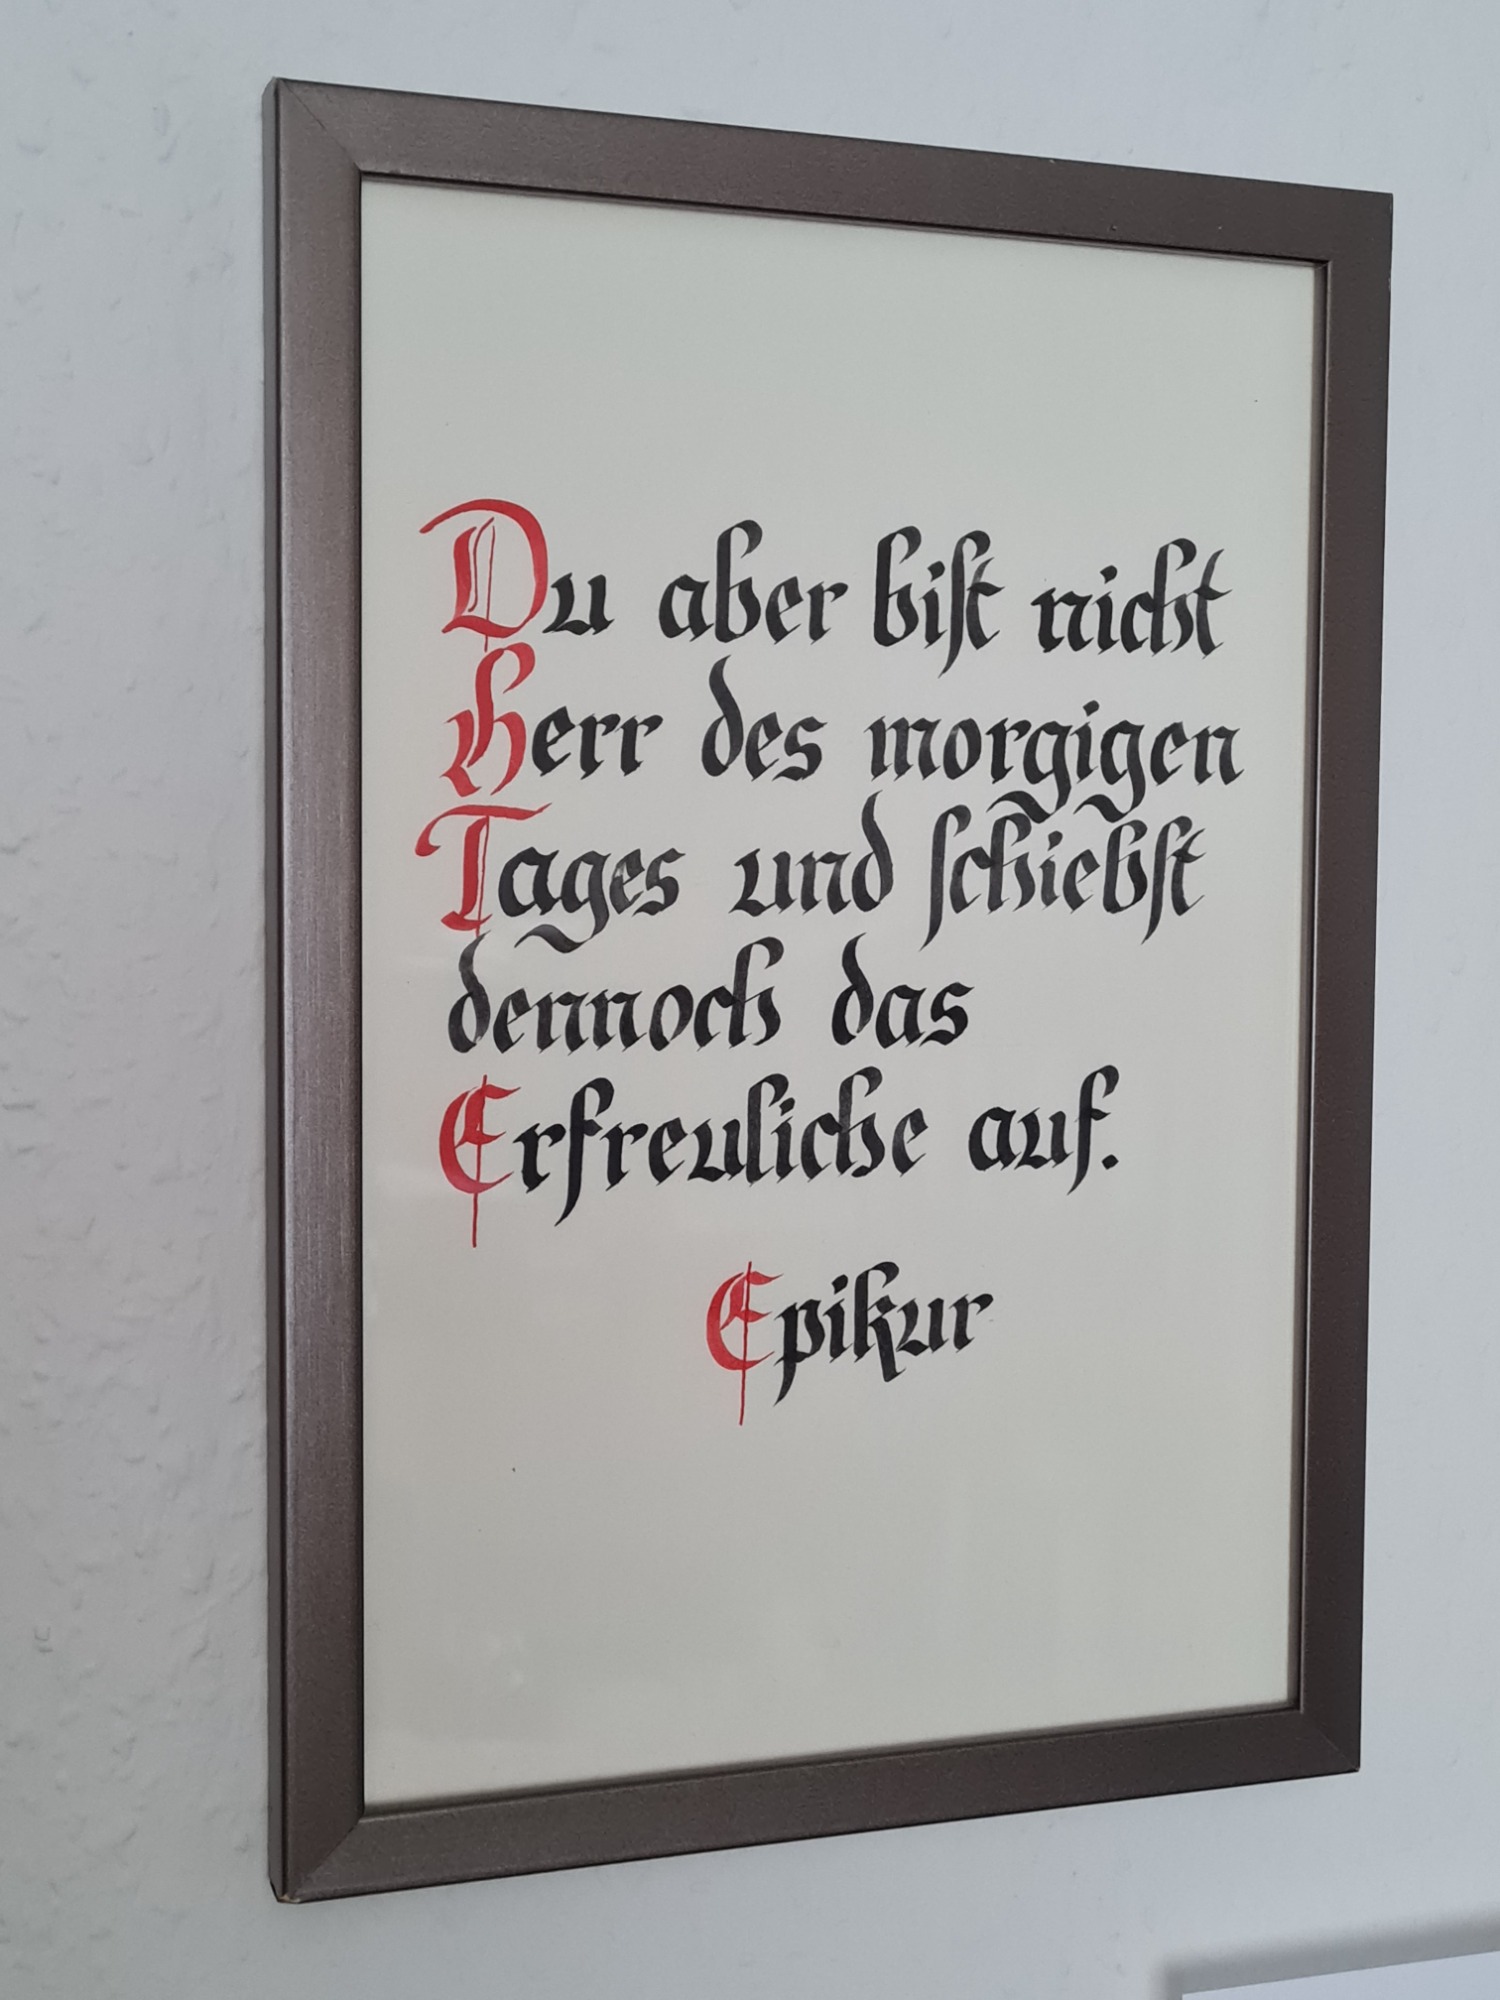 Du aber bist nicht
Herr des morgigen
Tages und schiebst
dennoch das
Erfreuliche auf.
Epikur